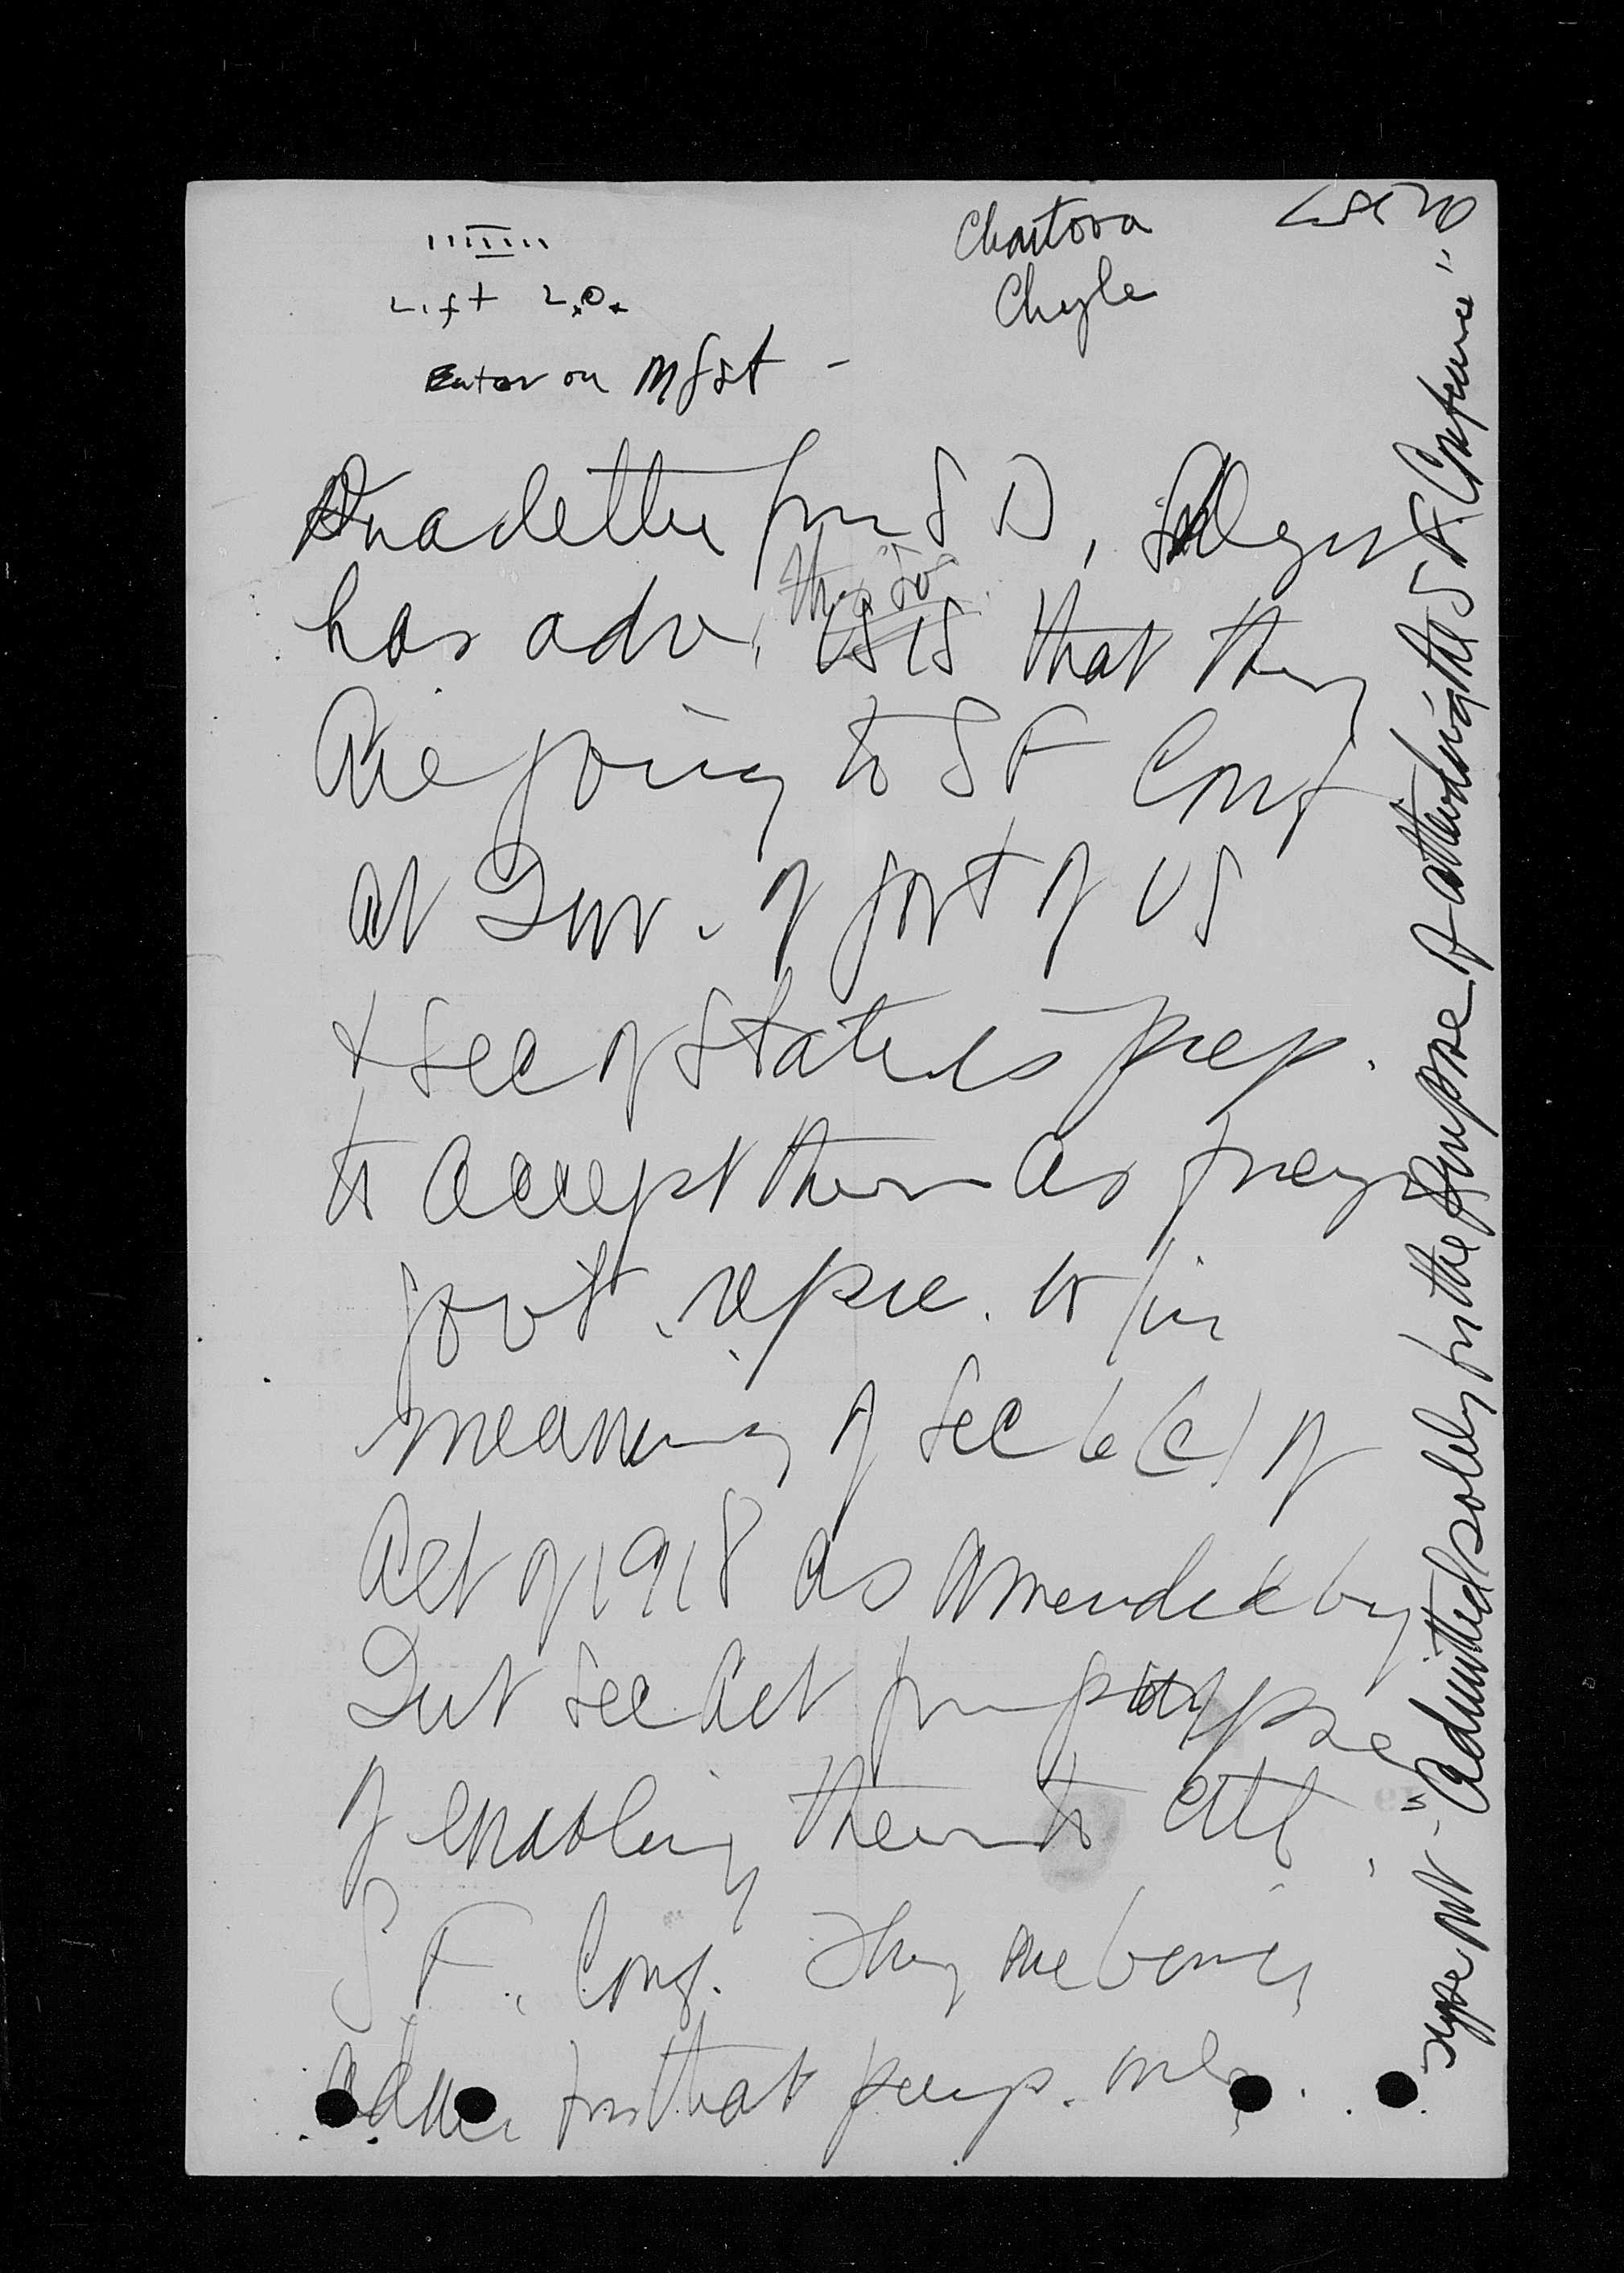 Chartova
Chyle
Lift L.O.
Enter on Mfst -
In a letter from S D,
has adv. this so that they
are going to S F Conf
at Inv. of govt of US
& Sec of State is prep.
to accept them as
govt. repre. w/in
meaning of Sec 6 (c) of
Act of 1918 as amended by
Int Sec Act for purpose
of enabling them to att.
S F. Conf. They are being
adm. for that purp. only.
Type on - "Admitted solely for the purpose of attending the S.F. Conference"